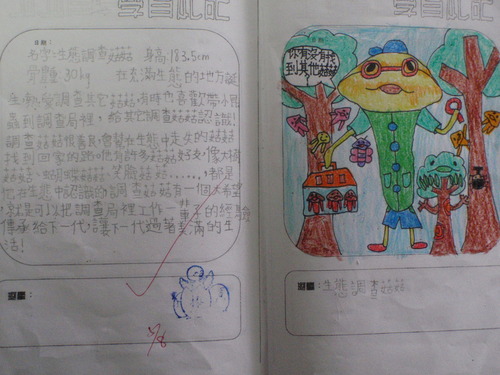 學習札記
日期：
名字：生態調查菇菇 身高：183.5cm
體重30kg 在充滿生態的地方誕
生，熱愛調查其它菇菇，有時也喜歡帶小昆
蟲到調查局裡，給其它調查菇菇認識！
調查菇菇很善良，會幫在生態中走失的菇菇
找到回家的路，他有許多菇菇好友，像大樹
菇菇、 菇菇、笑臉菇菇……，都是
他在生態中認識的，調查菇菇有一個大希望
，就是可以把調查局裡工作一輩子的經驗
傳承給下一代，讓下一代過著美滿的生
活！
5/8
學習札記
日期：
你有沒有找
到其他菇菇
生態調查菇菇